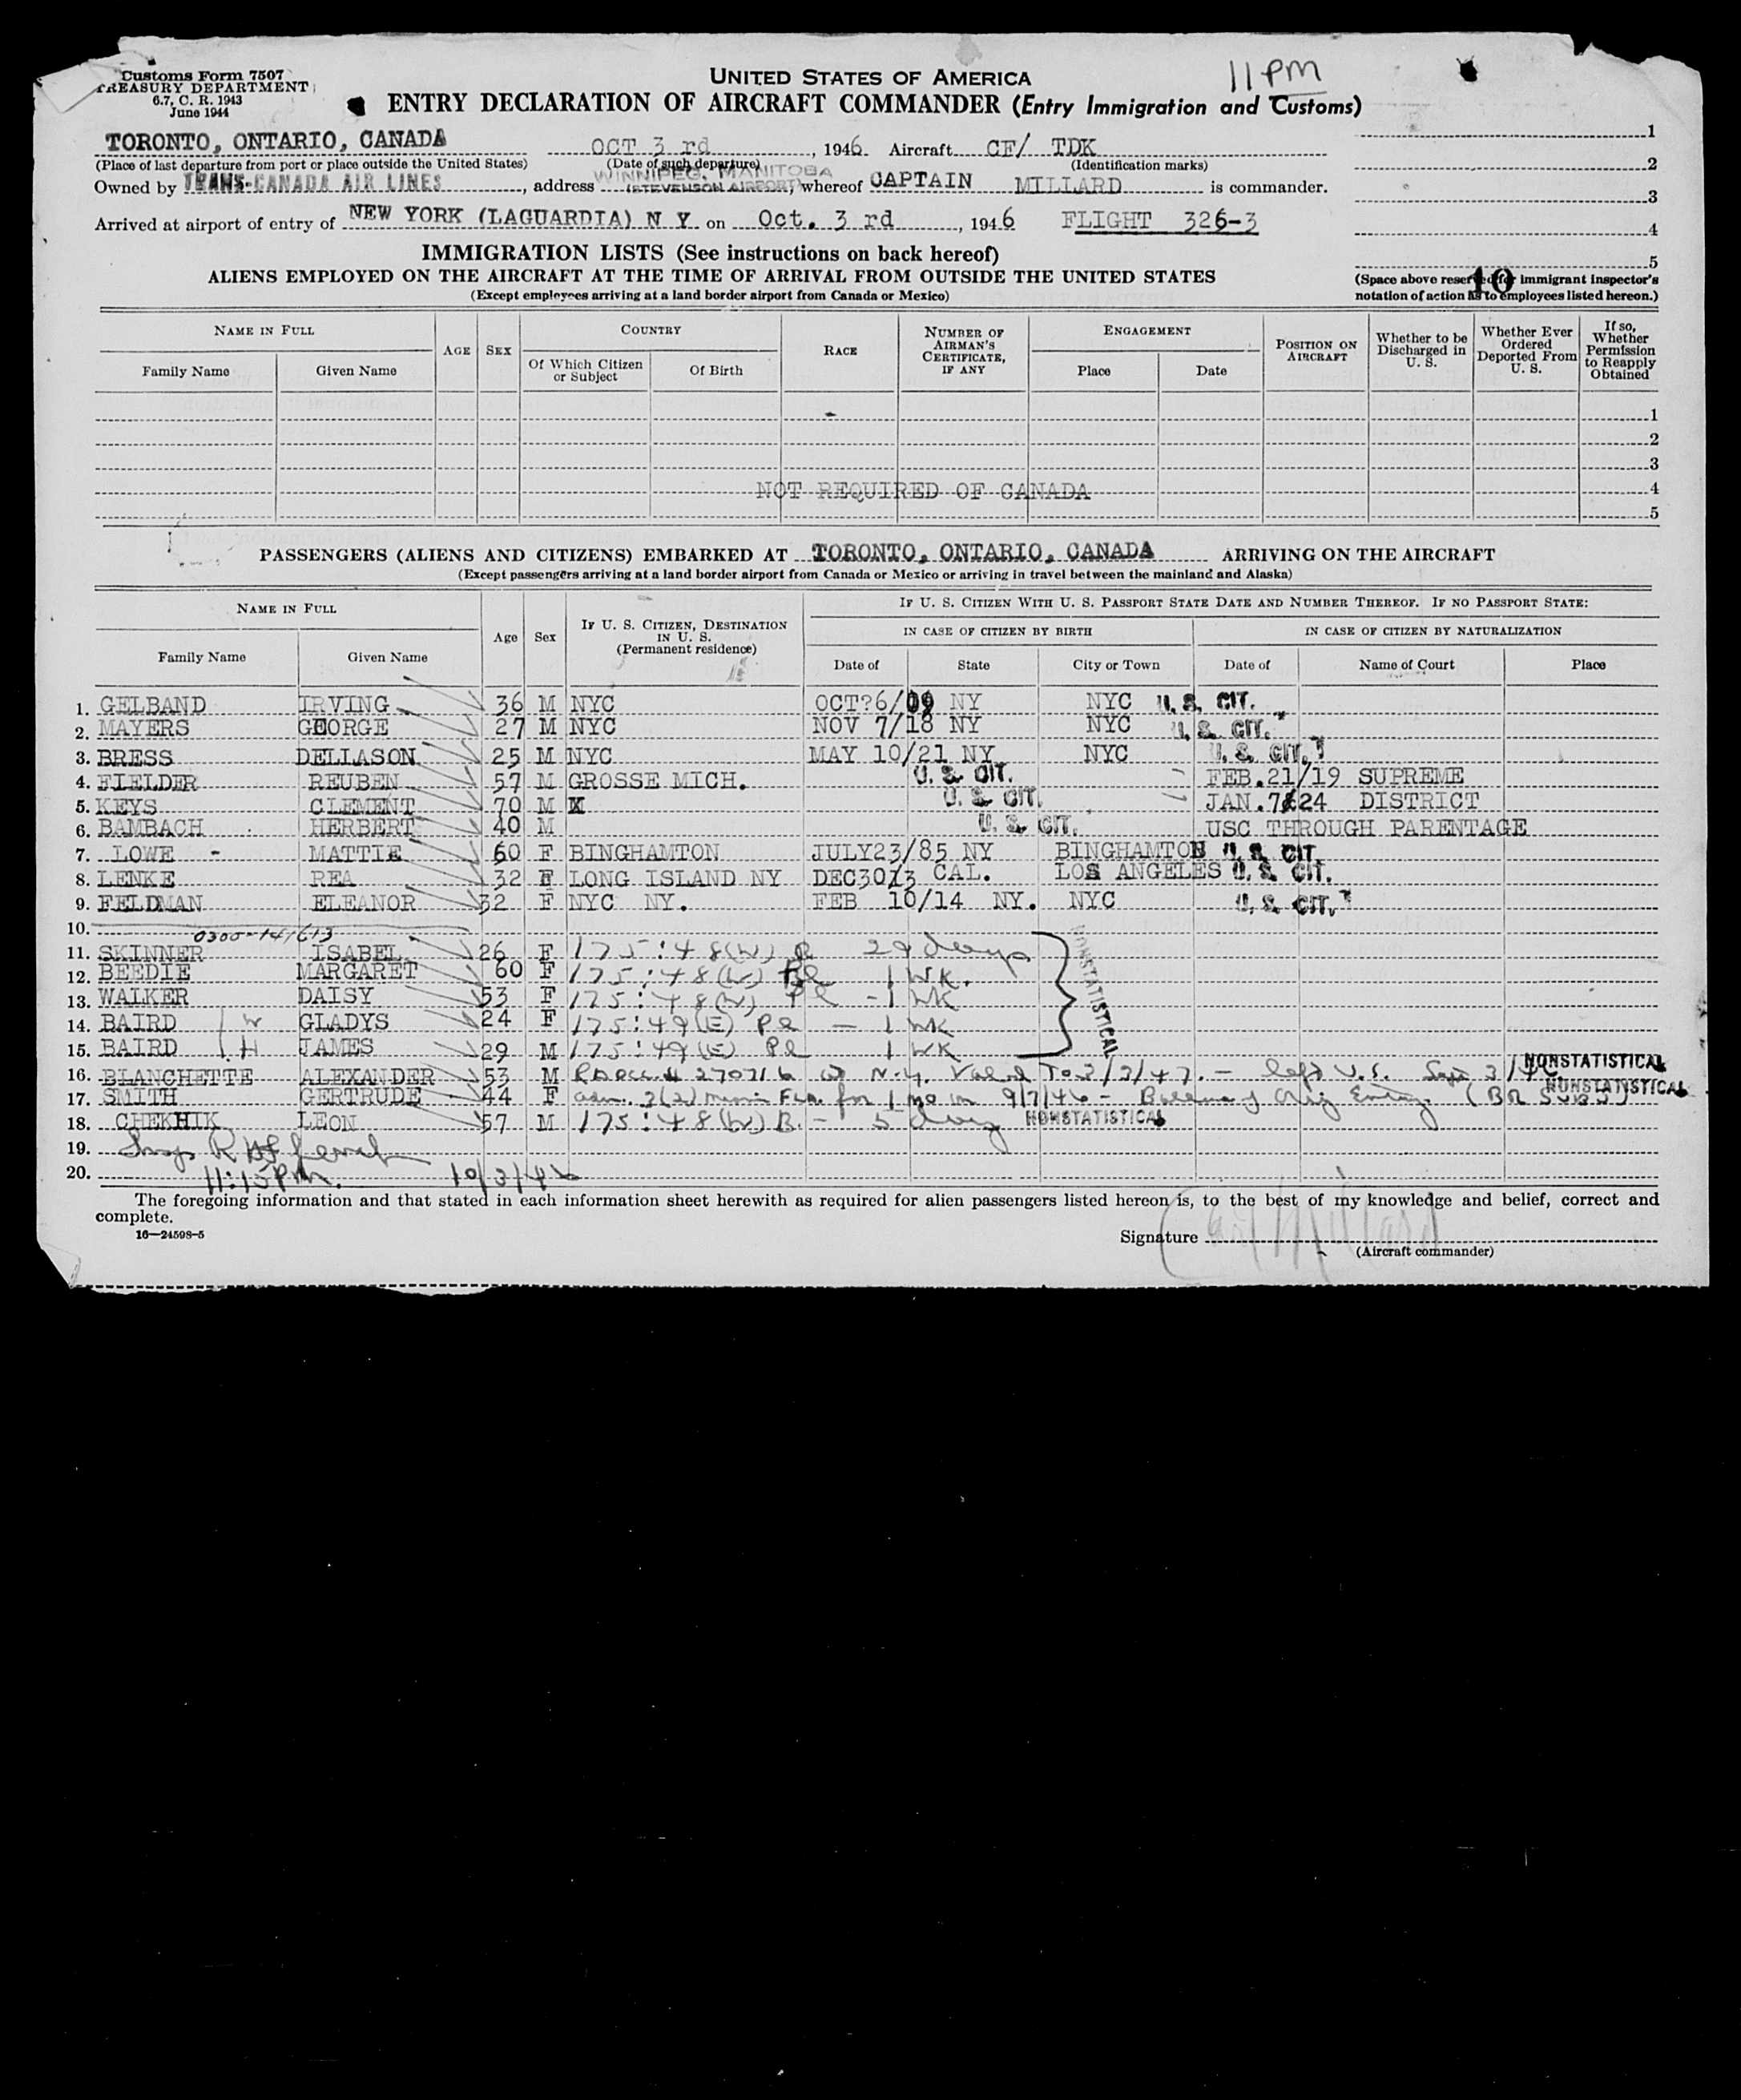 Customs Form 7507
TREASURY DEPARTMENT
6.7, C. R. 1943
June 1944
UNITED STATES OF AMERICA
11 PM
ENTRY DECLARATION OF AIRCRAFT COMMANDER (Entry Immigration and Customs)
TORONTO, ONTARIO, CANADA OCT 3 rd, 1946 Aircraft CF/ TDK
(Place of last departure from port or place outside the United States) (Date of such departure) (Identification marks)
Owned by TRANS-CANADA AIR LINES, address WINNIPEG, MANITOBA (STEVENSON AIRPORT), whereof CAPTAIN MILLARD is commander.
Arrived at airport of entry of NEW YORK (LAGUARDIA) N Y on Oct. 3 rd, 1946 FLIGHT 326-3
1
2
3
4
5
IMMIGRATION LISTS (See instructions on back hereof)
ALIENS EMPLOYED ON THE AIRCRAFT AT THE TIME OF ARRIVAL FROM OUTSIDE THE UNITED STATES
(Except employees arriving at a land border airport from Canada or Mexico)
(Space above reserved for immigrant inspector's
notation of action as to employees listed hereon.)
10
NAME IN FULL AGE SEX COUNTRY RACE NUMBER OF AIRMAN'S CERTIFICATE, IF ANY ENGAGEMENT POSITION ON AIRCRAFT Whether to be Discharged in U. S. Whether Ever Ordered Deported From U. S. If so, Whether Permission to Reapply Obtained
Family Name Given Name Of Which Citizen or Subject Of Birth Place Date
1
2
3
NOT REQUIRED OF CANADA 4
5
PASSENGERS (ALIENS AND CITIZENS) EMBARKED AT TORONTO, ONTARIO, CANADA ARRIVING ON THE AIRCRAFT
(Except passengers arriving at a land border airport from Canada or Mexico or arriving in travel between the mainland and Alaska)
NAME IN FULL Age Sex IF U. S. CITIZEN, DESTINATION IN U. S. (Permanent residence) IF U. S. CITIZEN WITH U. S. PASSPORT STATE DATE AND NUMBER THEREOF. IF NO PASSPORT STATE:
IN CASE OF CITIZEN BY BIRTH IN CASE OF CITIZEN BY NATURALIZATION
Family Name Given Name Date of State City or Town Date of Name of Court Place
1. GELBAND IRVING 36 M NYC OCT?6/09 NY NYC U. S. CIT.
2. MAYERS GEORGE 27 M NYC NOV 7/18 NY NYC U. S. CIT.
3. BRESS DELLASON 25 M NYC MAY 10/21 NY NYC U. S. CIT.
4. FIELDER REUBEN 57 M GROSSE MICH. U. S. CIT. FEB.21/19 SUPREME
5. KEYS CLEMENT 70 M X U. S. CIT. JAN.7/24 DISTRICT
6. BAMBACH HERBERT 40 M U. S. CIT. USC THROUGH PARENTAGE
7. LOWE - MATTIE 60 F BINGHAMTON JULY23/85 NY BINGHAMTON U. S. CIT.
8. LENKE REA 32 F LONG ISLAND NY DEC3013 CAL. LOS ANGELES U. S. CIT.
9. FELDMAN ELEANOR 32 F NYC NY. FEB 10/14 NY. NYC U. S. CIT.
10.
0300-141613
11. SKINNER ISABEL 26 F 175:48(W) 29 days
12. BEEDIE MARGARET 60 F 175:48(W) 1 WK.
13. WALKER DAISY 53 F 175:48(W) Pl - 1 WK
14. BAIRD W GLADYS 24 F 175:49(E) Pl - 1 WK
15. BAIRD H JAMES 29 M 175:49(E) Pl 1 WK
NONSTATISTICAL
16. BLANCHETTE ALEXANDER 53 M # 270716 N.Y. Valid To 3/3/47. - left U.S. Sept 3/46 NONSTATISTICAL
17. SMITH GERTRUDE 44 F adm. 3(2) for 1 mo on 9/7/46 - Balance of Orig Entry (BR SUBJ) NONSTATISTICAL
18. CHEKHIK LEON 57 M 175:48(W) B. - 5 days NONSTATISTICAL
19. Insp R
20. 11:15 PM. 10/3/46
The foregoing information and that stated in each information sheet herewith as required for alien passengers listed hereon is, to the best of my knowledge and belief, correct and
complete.
16—24598-5
Signature Millard
(Aircraft commander)